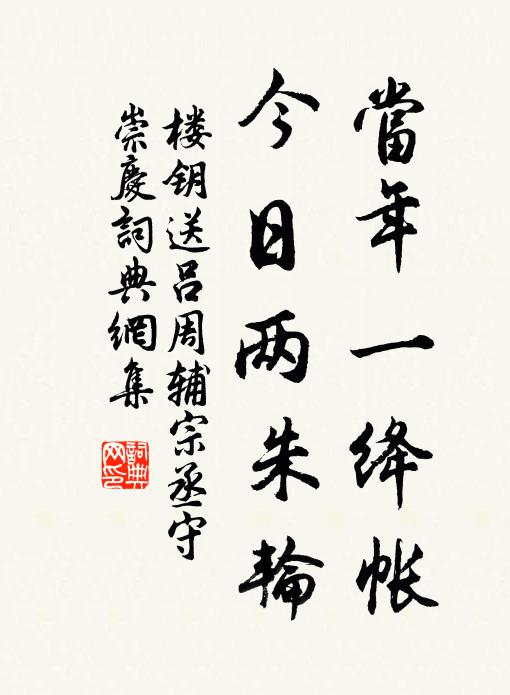 當年一绛帐
今日两朱輪
楼钥送吕周辅宗丞守
崇慶詞典網集
詞典网印